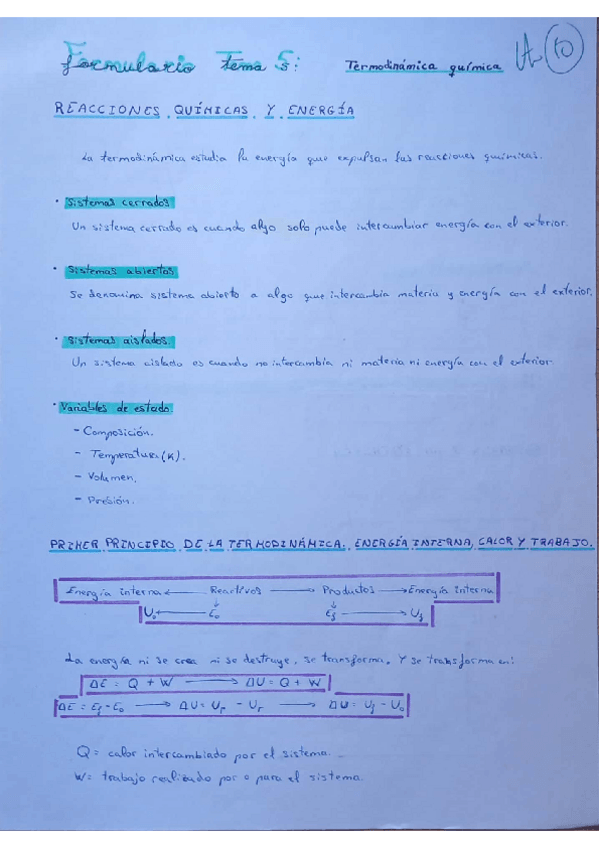 Formulario Tema 5: Termodinámica química
10
REACCIONES QUÍMICAS Y ENERGÍA
La termodinámica estudia la energía que expulsan las reacciones químicas.
· Sistemas cerrados
Un sistema cerrado es cuando algo solo puede intercambiar energía con el exterior.
· Sistemas abiertos
Se denomina sistema abierto a algo que intercambia materia y energía con el exterior.
· Sistemas aislados.
Un sistema aislado es cuando no intercambia ni materia ni energía con el exterior.
· Variables de estado.
- Composición.
- Temperatura (K).
- Volumen.
- Presión.
PRIMER PRINCIPIO DE LA TERMODINÁMICA. ENERGÍA INTERNA, CALOR Y TRABAJO.
Energía interna ← Reactivos → Productos → Energía interna
U₀ ← E₀ E_f → U_f
La energía ni se crea ni se destruye, se transforma. Y se transforma en:
ΔE = Q + W → ΔU = Q + W
ΔE = E_f - E₀ → ΔU = U_p - U_r → ΔU = U_f - U₀
Q = calor intercambiado por el sistema.
W = trabajo realizado por o para el sistema.